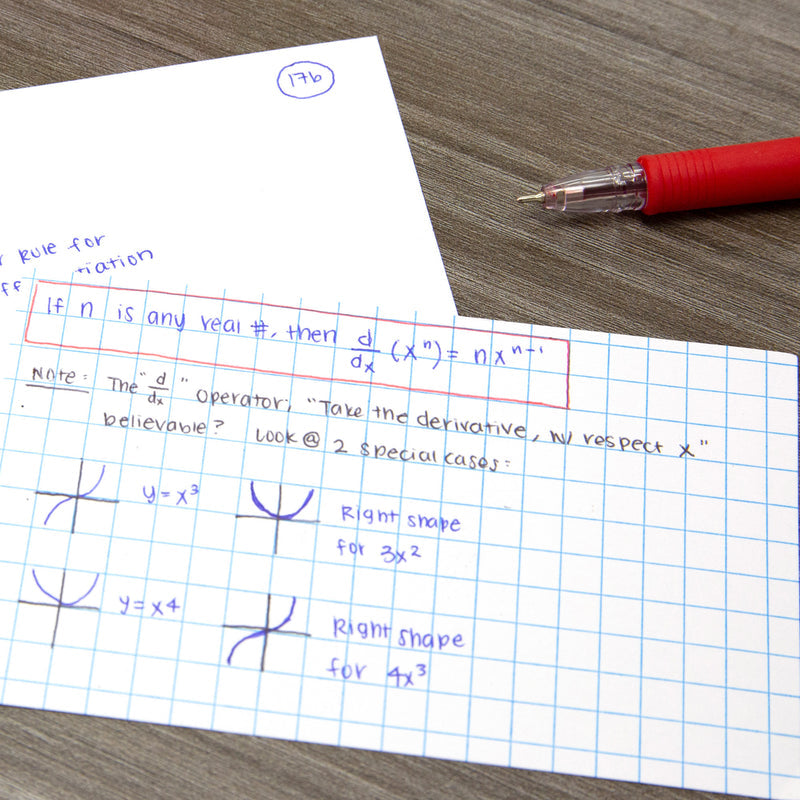 17b
Rule for
If n is any real #, then d/dx (xⁿ) = nxⁿ⁻¹
Note: The "d/dx" operator; "Take the derivative, w/ respect x"
believable? Look @ 2 special cases:
y = x³
Right shape
for 3x²
y = x4
Right shape
for 4x³